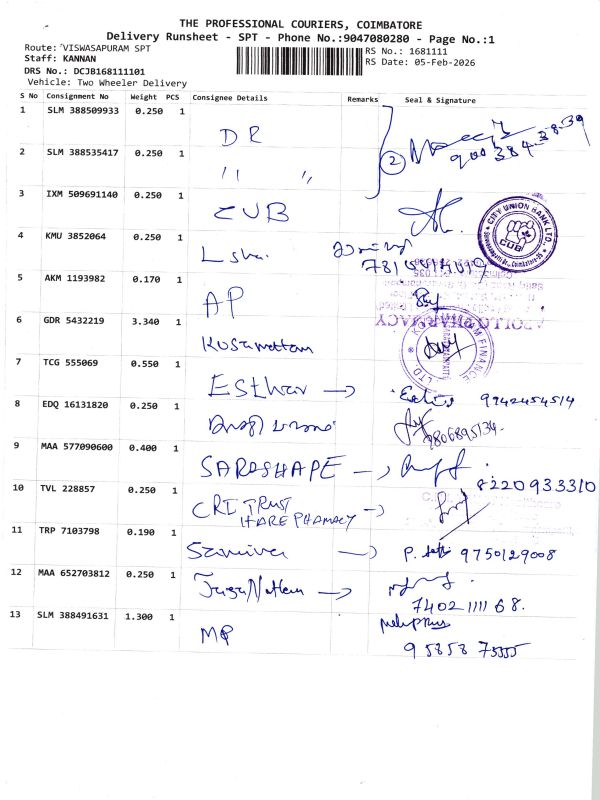 THE PROFESSIONAL COURIERS, COIMBATORE
Delivery Runsheet - SPT - Phone No.:9047080280 - Page No.:1
Route: VISWASAPURAM SPT
RS No.: 1681111
Staff: KANNAN
RS Date: 05-Feb-2026
DRS No.: DCJB168111101
Vehicle: Two Wheeler Delivery
S No Consignment No Weight PCS Consignee Details Remarks Seal & Signature
1 SLM 388509933 0.250 1 DR
2 SLM 388535417 0.250 1 " " 2
3 IXM 509691140 0.250 1 CUB
CITY UNION BANK LTD.
CUB
4 KMU 3852064 0.250 1
5 AKM 1193982 0.170 1 AP
APOLLO PHARMACY
6 GDR 5432219 3.340 1 Kosamattam
FINANCE LTD.
7 TCG 555069 0.550 1 Esther → 9942454514
8 EDQ 16131820 0.250 1 9806895134
9 MAA 577090600 0.400 1 SARASHAPE → 8220933310
10 TVL 228857 0.250 1 CRI TRUST →
HARE PHAMACY
11 TRP 7103798 0.190 1 → P. 9750129008
12 MAA 652703812 0.250 1 →
7402 1111 68.
13 SLM 388491631 1.300 1 MP
95858 75555